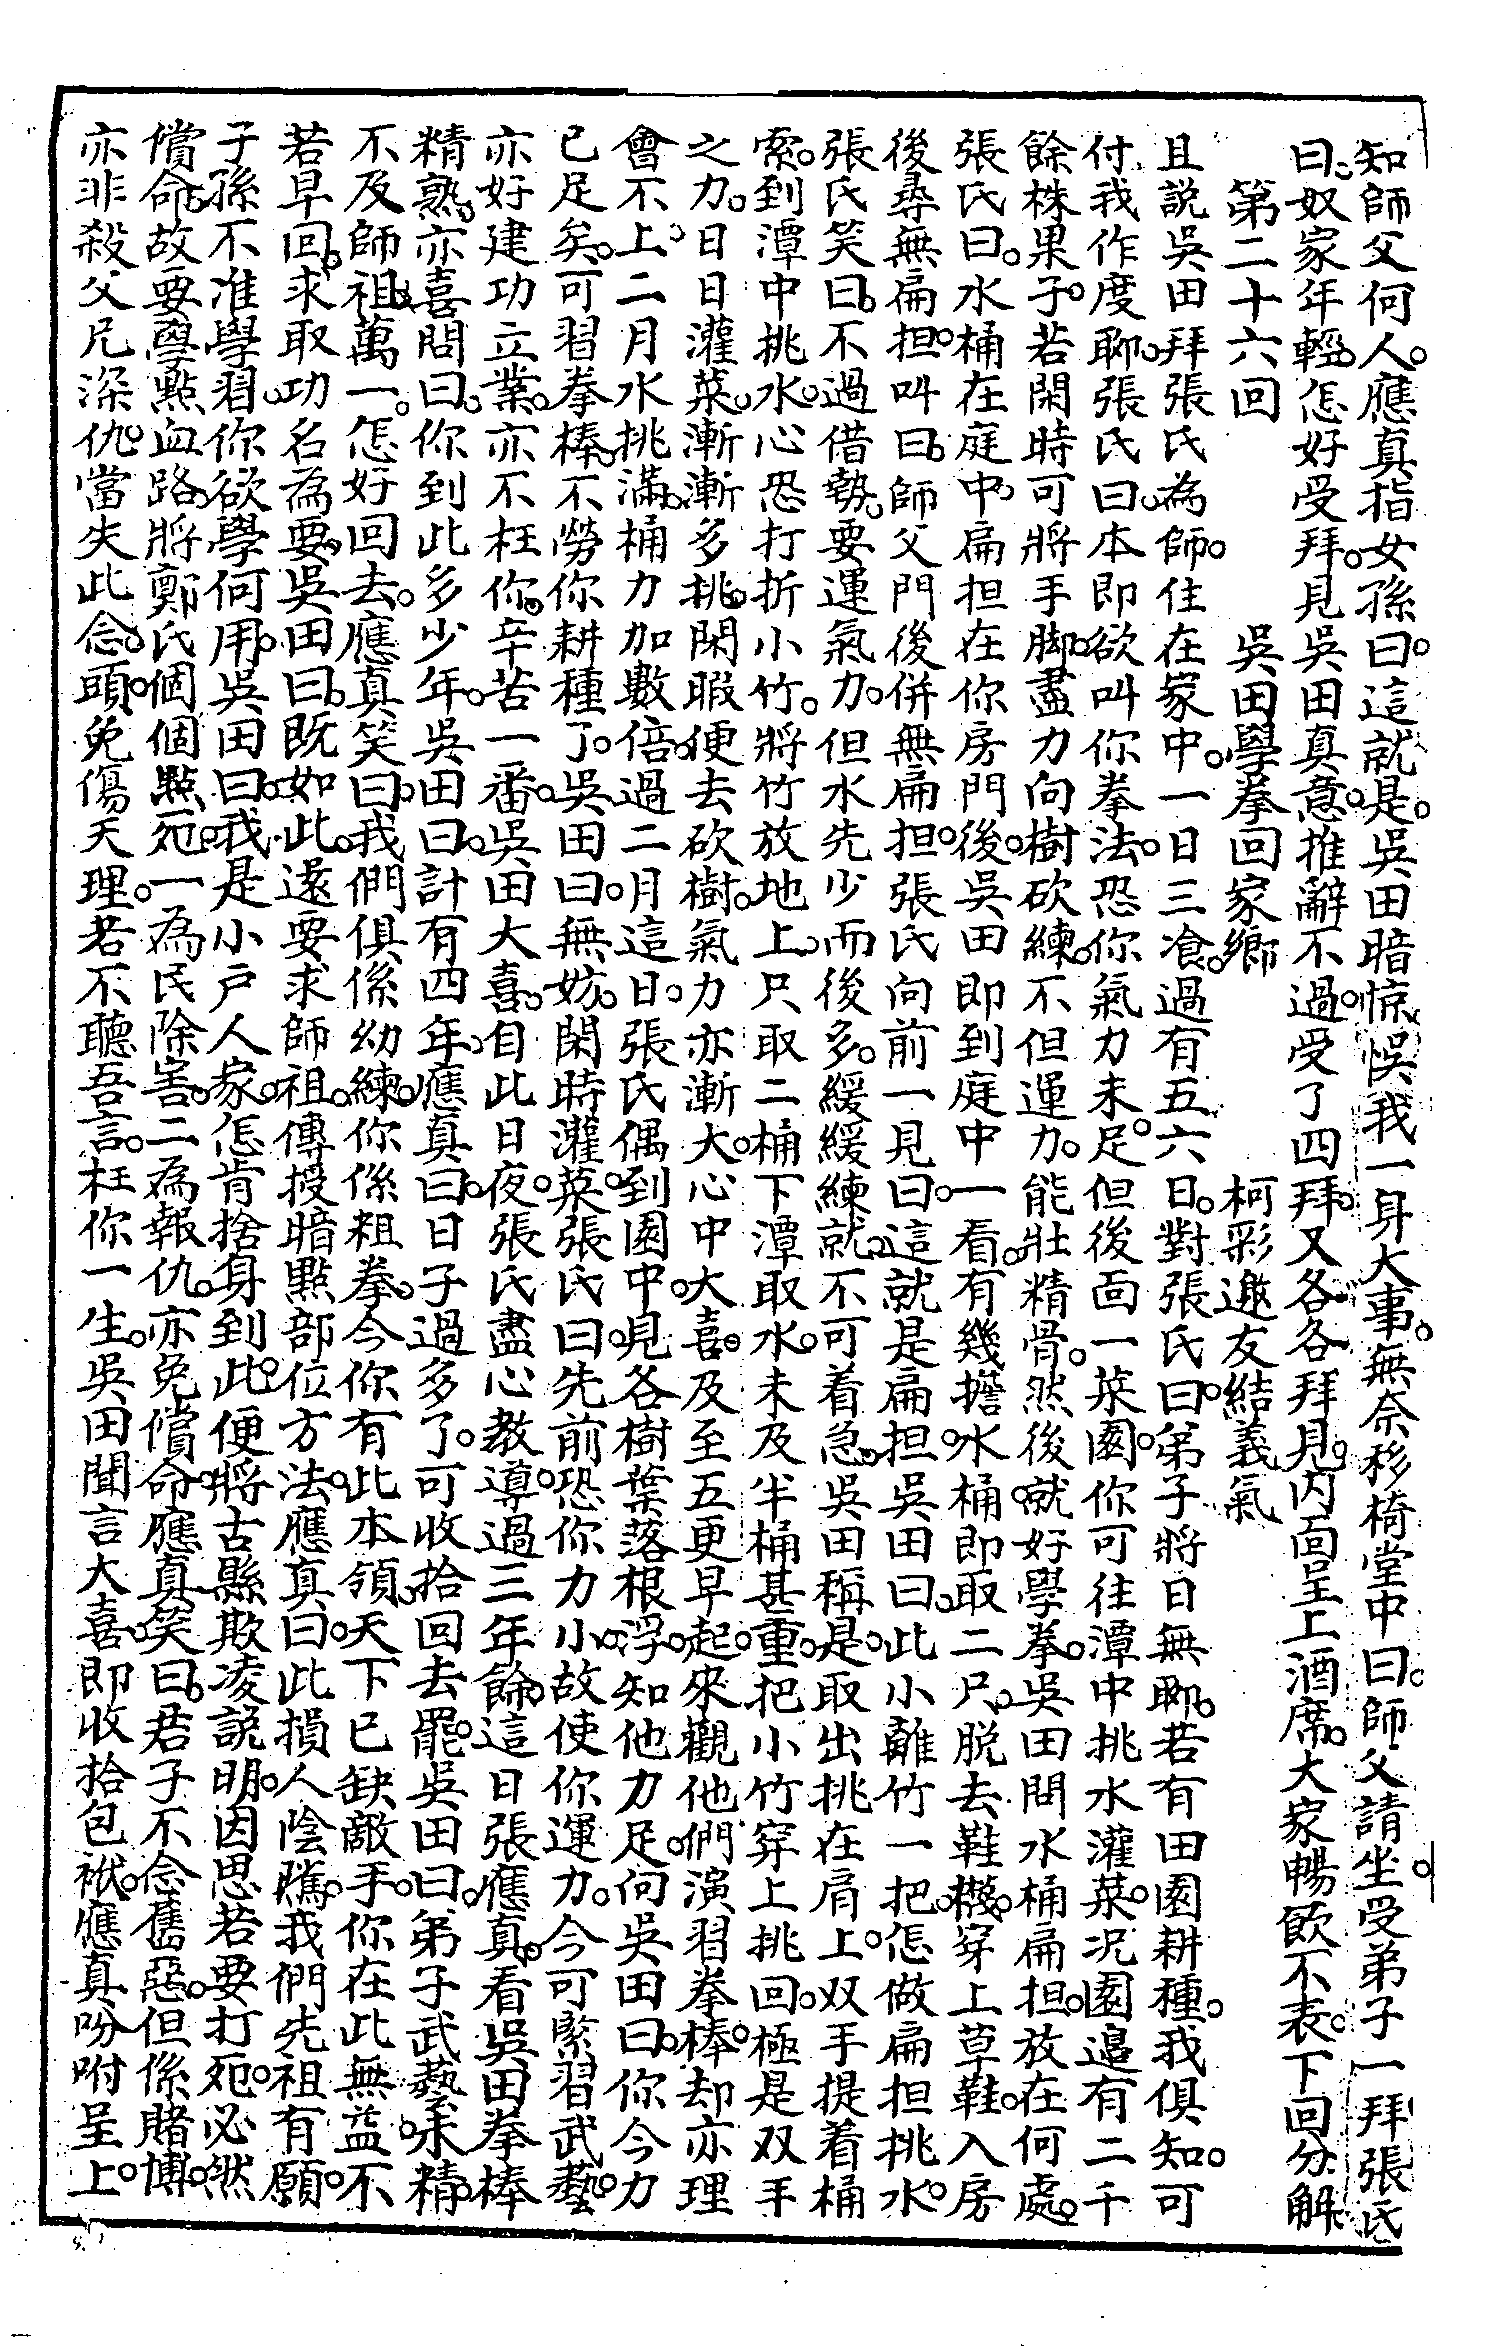 知師父何人。應真指女孫曰。這就是。吳田暗惊悞我一身大事。無奈移椅堂中曰。師父請坐。受弟子一拜。張氏
曰。奴家年輕。怎好受拜。見吳田真意。推辭不過。受了四拜。又各各拜見。内面呈上酒席。大家暢飲不表。下回分解
第二十六回　吳田學拳回家鄉　柯彩邀友結義氣
且説吳田拜張氏為師。住在家中。一日三飡。過有五六日。對張氏曰。弟子將日無聊。若有田園耕種。我俱知。可
付我作度聊。張氏曰。本即欲叫你拳法。恐你氣力未足。但後面一菜園。你可往潭中挑水灌菜。况園邉有二千
餘株果子。若閑時可將手脚。盡力向樹砍練。不但運力。能壯精骨。然後就好學拳。吳田問水桶扁担。放在何處。
張氏曰。水桶在庭中。扁担在你房門後。吳田即到庭中一看。有幾擔水桶。即取二只。脱去鞋襪。穿上草鞋。入房
後尋無扁担。叫曰。師父門後併無扁担。張氏向前一見曰。這就是扁担。吳田曰。此小雞竹一把。怎做扁担挑水。
張氏笑曰。不過借勢。要運氣力。但水先少而後多。緩緩練就。不可着急。吳田稱是。取出挑在肩上。双手提着桶
索。到潭中挑水。心恐打折小竹。將竹放地上。只取二桶下潭取水。未及半桶甚重。把小竹穿上挑回。極是双手
之力。日日灌菜。漸漸多挑。閑暇便去砍樹。氣力亦漸大。心中大喜。及至五更早起。來觀他們演習拳棒。却亦理
會不上。二月水挑滿桶。力加數倍。過二月這日。張氏偶到園中。見各樹葉落根浮。知他力足。向吳田曰。你今力
已足矣。可習拳棒。不勞你耕種了。吳田曰。無妨。閑時灌菜。張氏曰。先前恐你力小。故使你運力。今可緊習武藝。
亦好建功立業。亦不枉你辛苦一番。吳田大喜。自此日夜。張氏盡心教導。過三年餘。這日張應真。看吳田拳棒
精熟。亦喜問曰。你到此多少年。吳田曰。計有四年。應真曰。日子過多了。可收拾回去罷。吳田曰。弟子武藝未精。
不及師祖。萬一。怎好回去。應真笑曰。我們俱係幼練。你係粗拳。今你有此本領。天下已缺敵手。你在此無益。不
若早回。求取功名為要。吳田曰。既如此。遠要求師祖。傳授暗點部位方法。應真曰。此損人陰隲。我們先祖有願。
子孫不准學習。你欲學何用。吳田曰。我是小戶人家。怎肯捨身到此。便將古縣欺凌說明。因思若要打死。必然
償命。故要學點血路。將鄭氏個個點死。一為民除害。二為報仇。亦免償命。應真笑曰。君子不念舊惡。但係賭博。
亦非殺父凡深仇。當失此念頭。免傷天理。若不聽吾言。枉你一生。吳田聞言大喜。即收拾包袱。應真吩咐呈上。